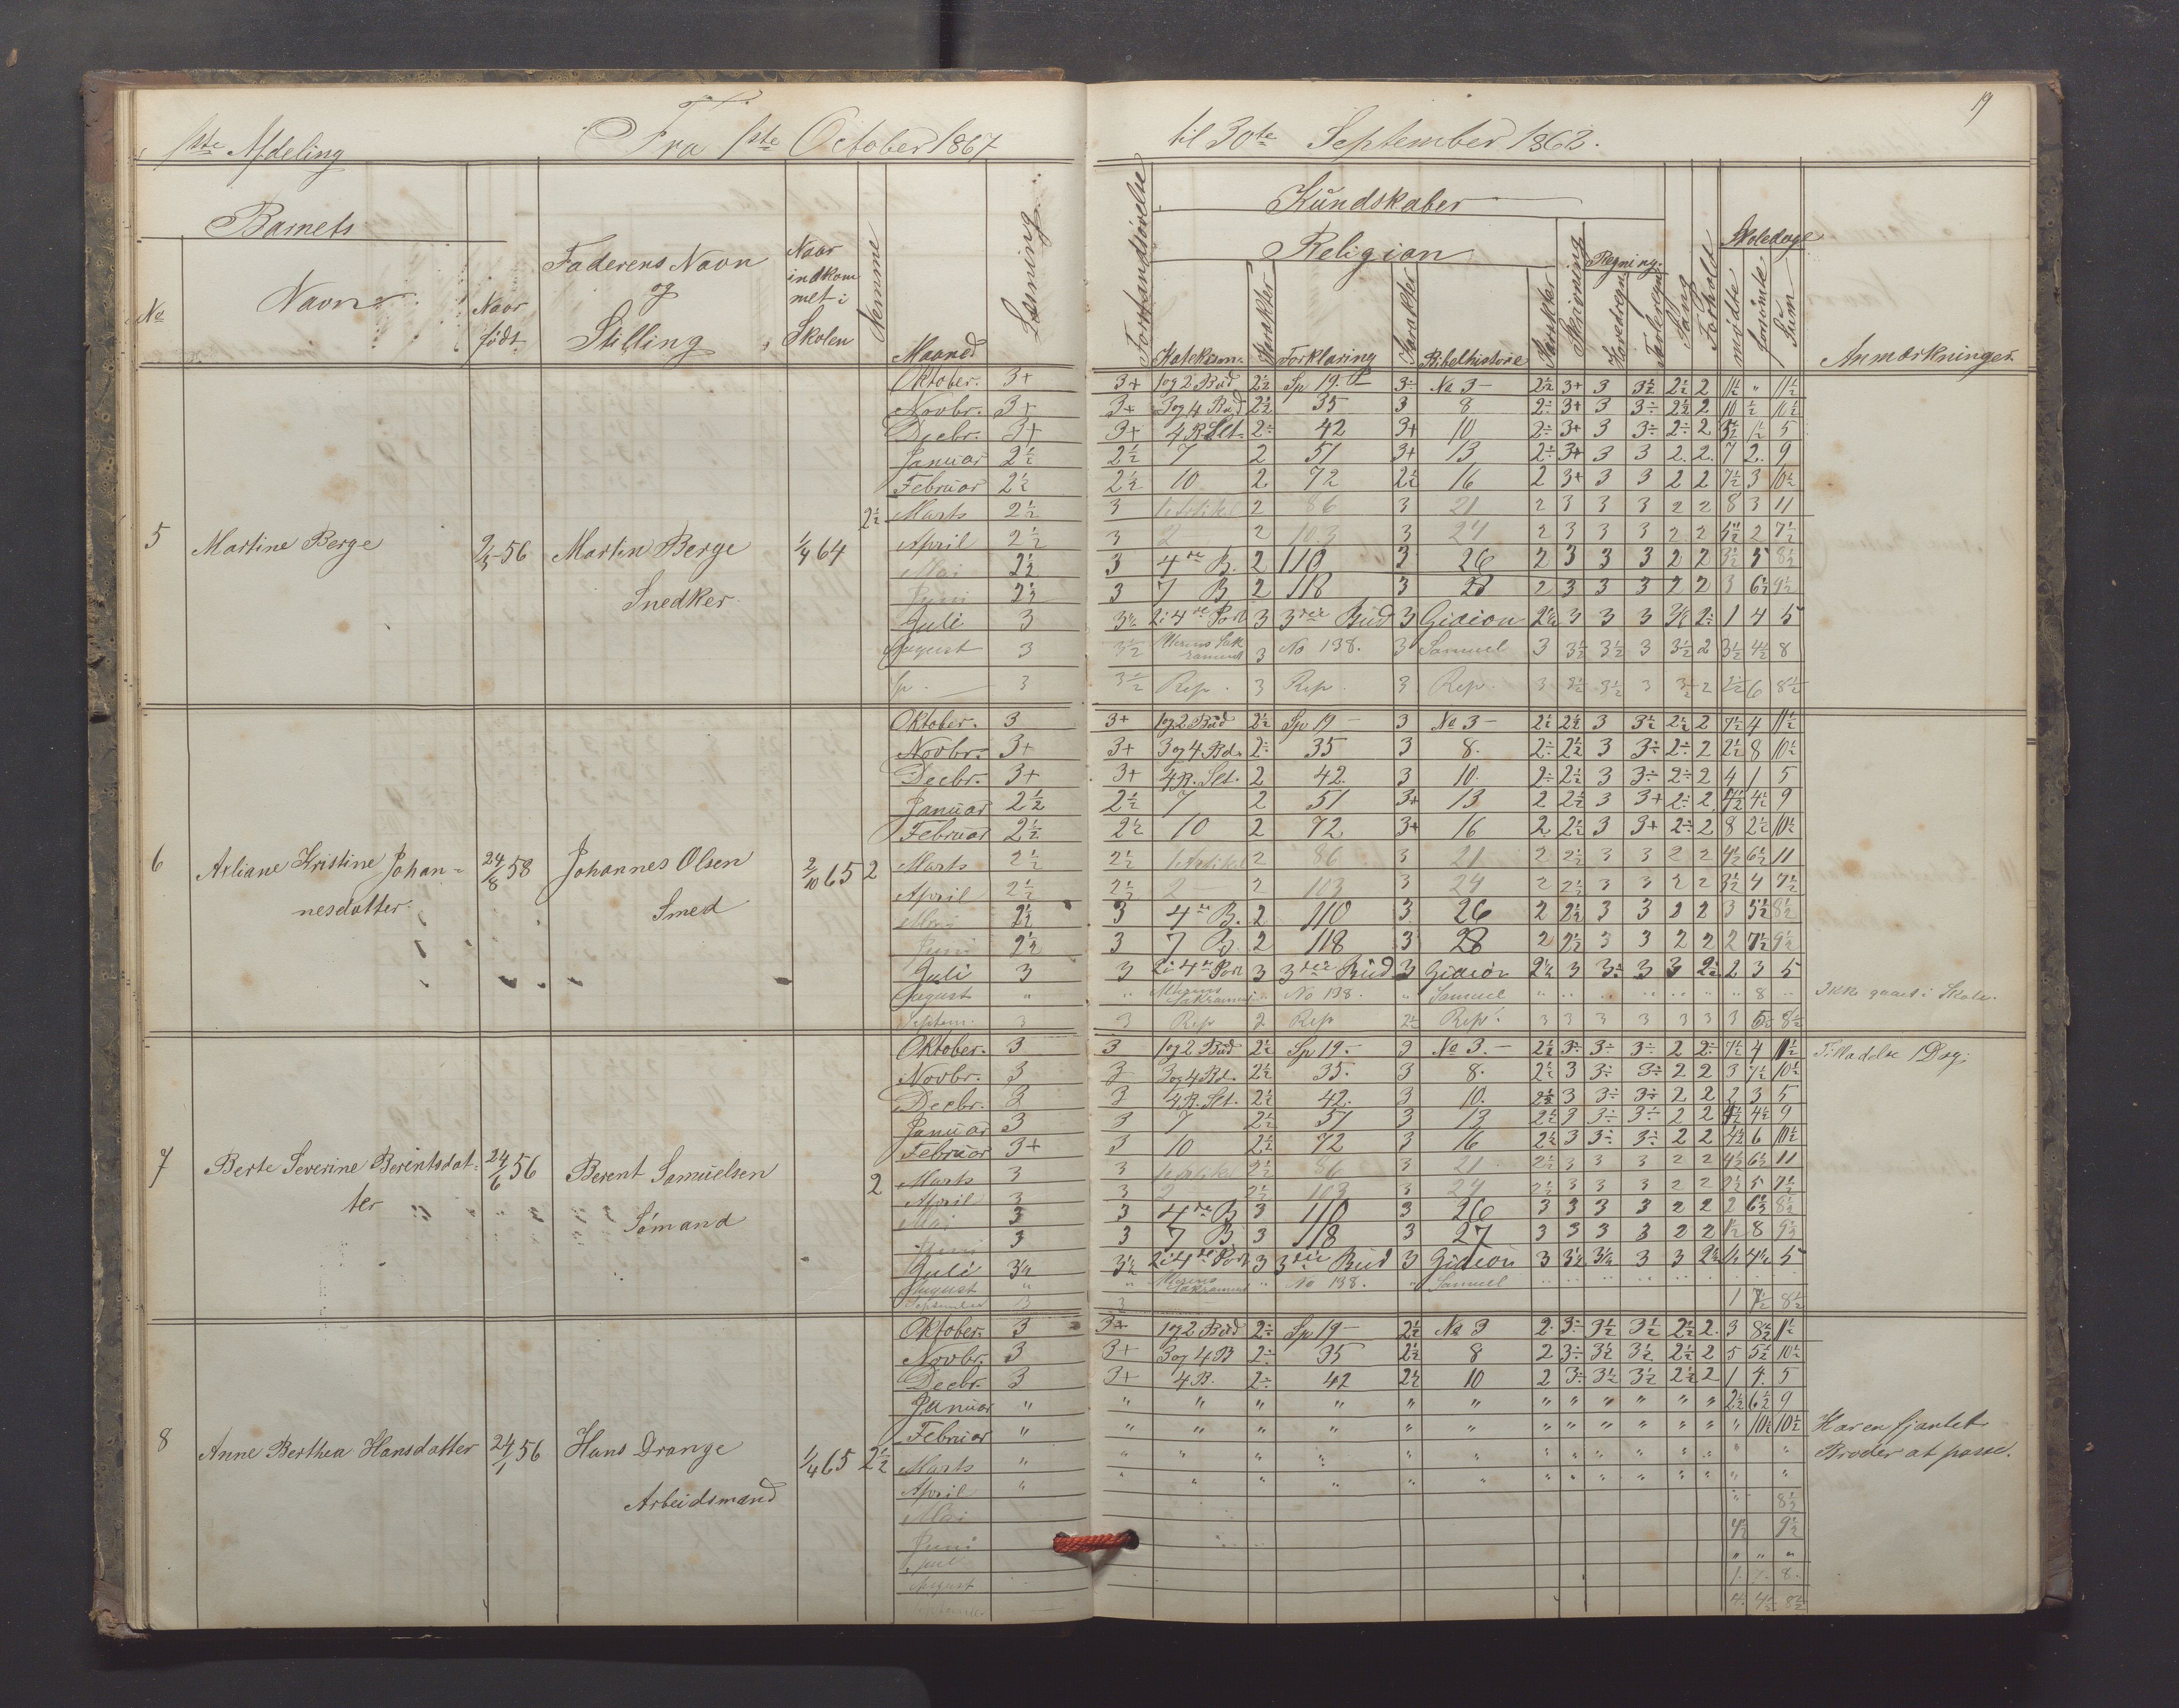 19
1ste Afdeling Fra 1ste October 1867 til 30te September 1868.
Barnets
No Navn Naar født
Faderens Navn og Stilling
Naar indkommet i Skolen
Nemme
Maaned
Læsning
Forstandsøvelse
Kundskaber
Religion
Katekism. Karakter Forklaring Karakter Bibelhistorie Karakter
Skrivning
Regning
Hovedregn. Tavleregn.
Sang
Forhold
Skoledage
mødte forsømte Sum
Anmærkninger
5 Martine Berge 2/3-56 Martin Berge Snedker 1/4 64 2½
Oktober. 3+ 3+ 1 og 2 Bud 2½ Sp 19.- 3÷ No 3- 2½ 3+ 3 3½ 2½ 2 11½ " 11½
Novbr. 3+ 3+ 3 og 4 Bud 2½ 35 3 8 2÷ 3+ 3 3÷ 2½ 2 10 ½ 10½
Decbr. 3+ 3+ 4 B. Slt. 2÷ 42 3+ 10 2÷ 3+ 3 3÷ 2÷ 2 3½ 1½ 5
Januar 2½ 2½ 7 2 51 3+ 13 2÷ 3+ 3 3 2 2 7 2 9
Februar 2½ 2½ 10 2 72 2½ 16 2 3+ 3 3 2 2 7½ 3 10½
Marts 2½ 3 1 Artikel 2 86 3 21 2 3 3 3 2 2 8 3 11
April 2½ 3 2 2 103 3 24 2 3 3 3 2 2 5½ 2 7½
Mai 2½ 3 4de B. 2 110 3 26 2 3 3 3 2 2 3½ 5 8½
Juni 2½ 3 7 B 2 118 3 28 2 3 3 3 2 2 3 6½ 9½
Juli 3 3½ 2 i 4de Part 3 3die Bud 3 Gideon 2½ 3 3 3 3½ 2÷ 1 4 5
August 3 3½ Alterens Sakrament 3 No 138. 3 Samuel 3 3½ 3½ 3 3½ 2 3½ 4½ 8
Sp. 3 3½ Rep. 3 Rep. 3 Rep. 3 3½ 3½ 3 3½ 2 2½ 6 8½
6 Arliane Kristine Johannesdatter 24/8 58 Johannes Olsen Smed 2/10 65 2
Oktober. 3 3+ 1 og 2 Bud 2½ Sp 19- 3 No 3- 2½ 2½ 3 3½ 2½ 2 7½ 4 11½
Novbr. 3+ 3+ 3 og 4. Bd. 2÷ 35 3 8. 2÷ 2½ 3 3÷ 2÷ 2 2½ 8 10½
Decbr. 3+ 3+ 4 B. Slt. 2 42 3 10. 2÷ 2½ 3 3÷ 2÷ 2 4 1 5
Januar 2½ 2½ 7 2 51 3+ 13 2 2½ 3 3+ 2÷ 2 4½ 4½ 9
Februar 2½ 2½ 10 2 72 3+ 16 2 2½ 3 3+ 2÷ 2 8 2½ 10½
Marts 2½ 2½ 1 Artikel 2 86 3 21 2 2½ 3 3 2 2 4½ 6½ 11
April 2½ 2½ 2 2 103 3 24 2 2½ 3 3 2 2 3½ 4 7½
Mai 2½ 3 4de B. 2 110 3 26 2 2½ 3 3 2 2 3 5½ 8½
Juni 2½ 3 7 B. 2 118 3 28 2 2½ 3 3 2 2 2 7½ 9½
Juli 3 3 2 i 4de Part 3 3die Bud 3 Gideon 2½ 3 3÷ 3 3 2½ 2 3 5
August " " Alterens Sakrament " No 138. " Samuel " " " " " " " 8 " Ikke gaaet i Skole.
Septem. 3 3 Rep 2 Rep 2½ Rep. 3 3 3 3 3 3 3 5½ 8½
7 Berte Severine Berentsdatter 24/6 56 Berent Samuelsen Sømand 2
Oktober. 3 3 1 og 2 Bud 2½ Sp 19.- 3 No 3.- 2½ 3÷ 3÷ 3÷ 2 2÷ 7½ 4 11½ Tilladelse 1 Dag.
Novbr. 3 3 3 og 4 Bd. 2½ 35. 3 8. 2½ 3 3÷ 3÷ 2 2 3 7½ 10½
Decbr. 3 3 4 B. Slt. 2½ 42. 3 10. 2½ 3 3÷ 3÷ 2 2 2 3 5
Januar 3 3 7 2½ 51 3 13 2½ 3 3÷ 3÷ 2 2 4½ 4½ 9
Februar 3+ 3 10 2½ 72 3 16 2½ 3 3÷ 3÷ 2 2 4½ 6 10½
Marts 3 3 1 Artikel 2½ 86 3 21 2½ 3 3 3 2 2 4½ 6½ 11
April 3 3 2 2½ 103 3 24 2½ 3 3 3 2 2 2½ 5 7½
Mai 3 3 4de B 3 110 3 26 3 3 3 3 2 2 2 6½ 8½
Juni 3 3 7 B 3 118 3 27 3 3 3 3 2 2 1½ 8 9½
Juli 3½ 3½ 2 i 4de Part 3 3die Bud 3 Gideon 3 3½ 3½ 3 3 2½ ½ 4½ 5
August " " Alterens Sakrament " No 138. " Samuel
September 3 3 1 7½ 8½
8 Anne Berthea Hansdatter 24/1 56 Hans Drange Arbeidsmand 1/4 65 2½
Oktober. 3 3+ 1 og 2 Bud 2÷ Sp 19- 2½ No 3 2. 3÷ 3½ 3½ 2½ 2. 3 8½ 11½
Novbr. 3 3+ 3 og 4 B 2÷ 35 2½ 8 2 3÷ 3½ 3½ 2½ 2 5 5½ 10½
Decbr. 3 3+ 4 B. 2÷ 42 2½ 10 2 3÷ 3½ 3½ 2½ 2 1 4. 5
Januar " " " " " " " " " " " " " 2½ 6½ 9
Februar " " " " " " " " " " " " " " 10½ 10½ Har en fjantet
Marts " " " " " " " " " " " " " " " Broder at passe.
April " " " " " " " " " " " " " " "
Mai " 8½
Juni 9½
Juli " " "
August 1. 7. 8.
September 4. 4½ 8½